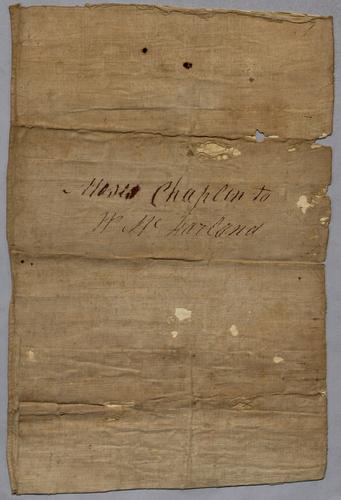 Moses Chaplin to
W McFarland